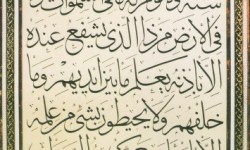 سنة ولا نوم له ما فى السموات وما
فى الارض من ذا الذى يشفع عنده
الا باذنه يعلم ما بين ايديهم وما
خلفهم ولا يحيطون بشئ من علمه